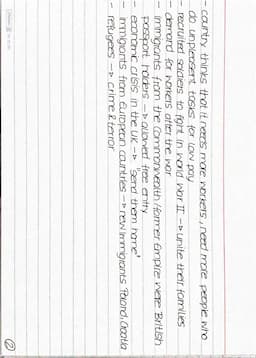 - country thinks that it needs more workers, need more people who
do unpleasent tasks for low pay
- recruited soldiers to fight in World War II → unite their families
- demand for workers after the war
- immigrants from the Commonwealth/former Empire were British
passport holders → allowed free entry
- economic crisis in the UK → "send them home"
- immigrants from European countries → new immigrants Poland, Croatia
- refugees → crime & terror
2